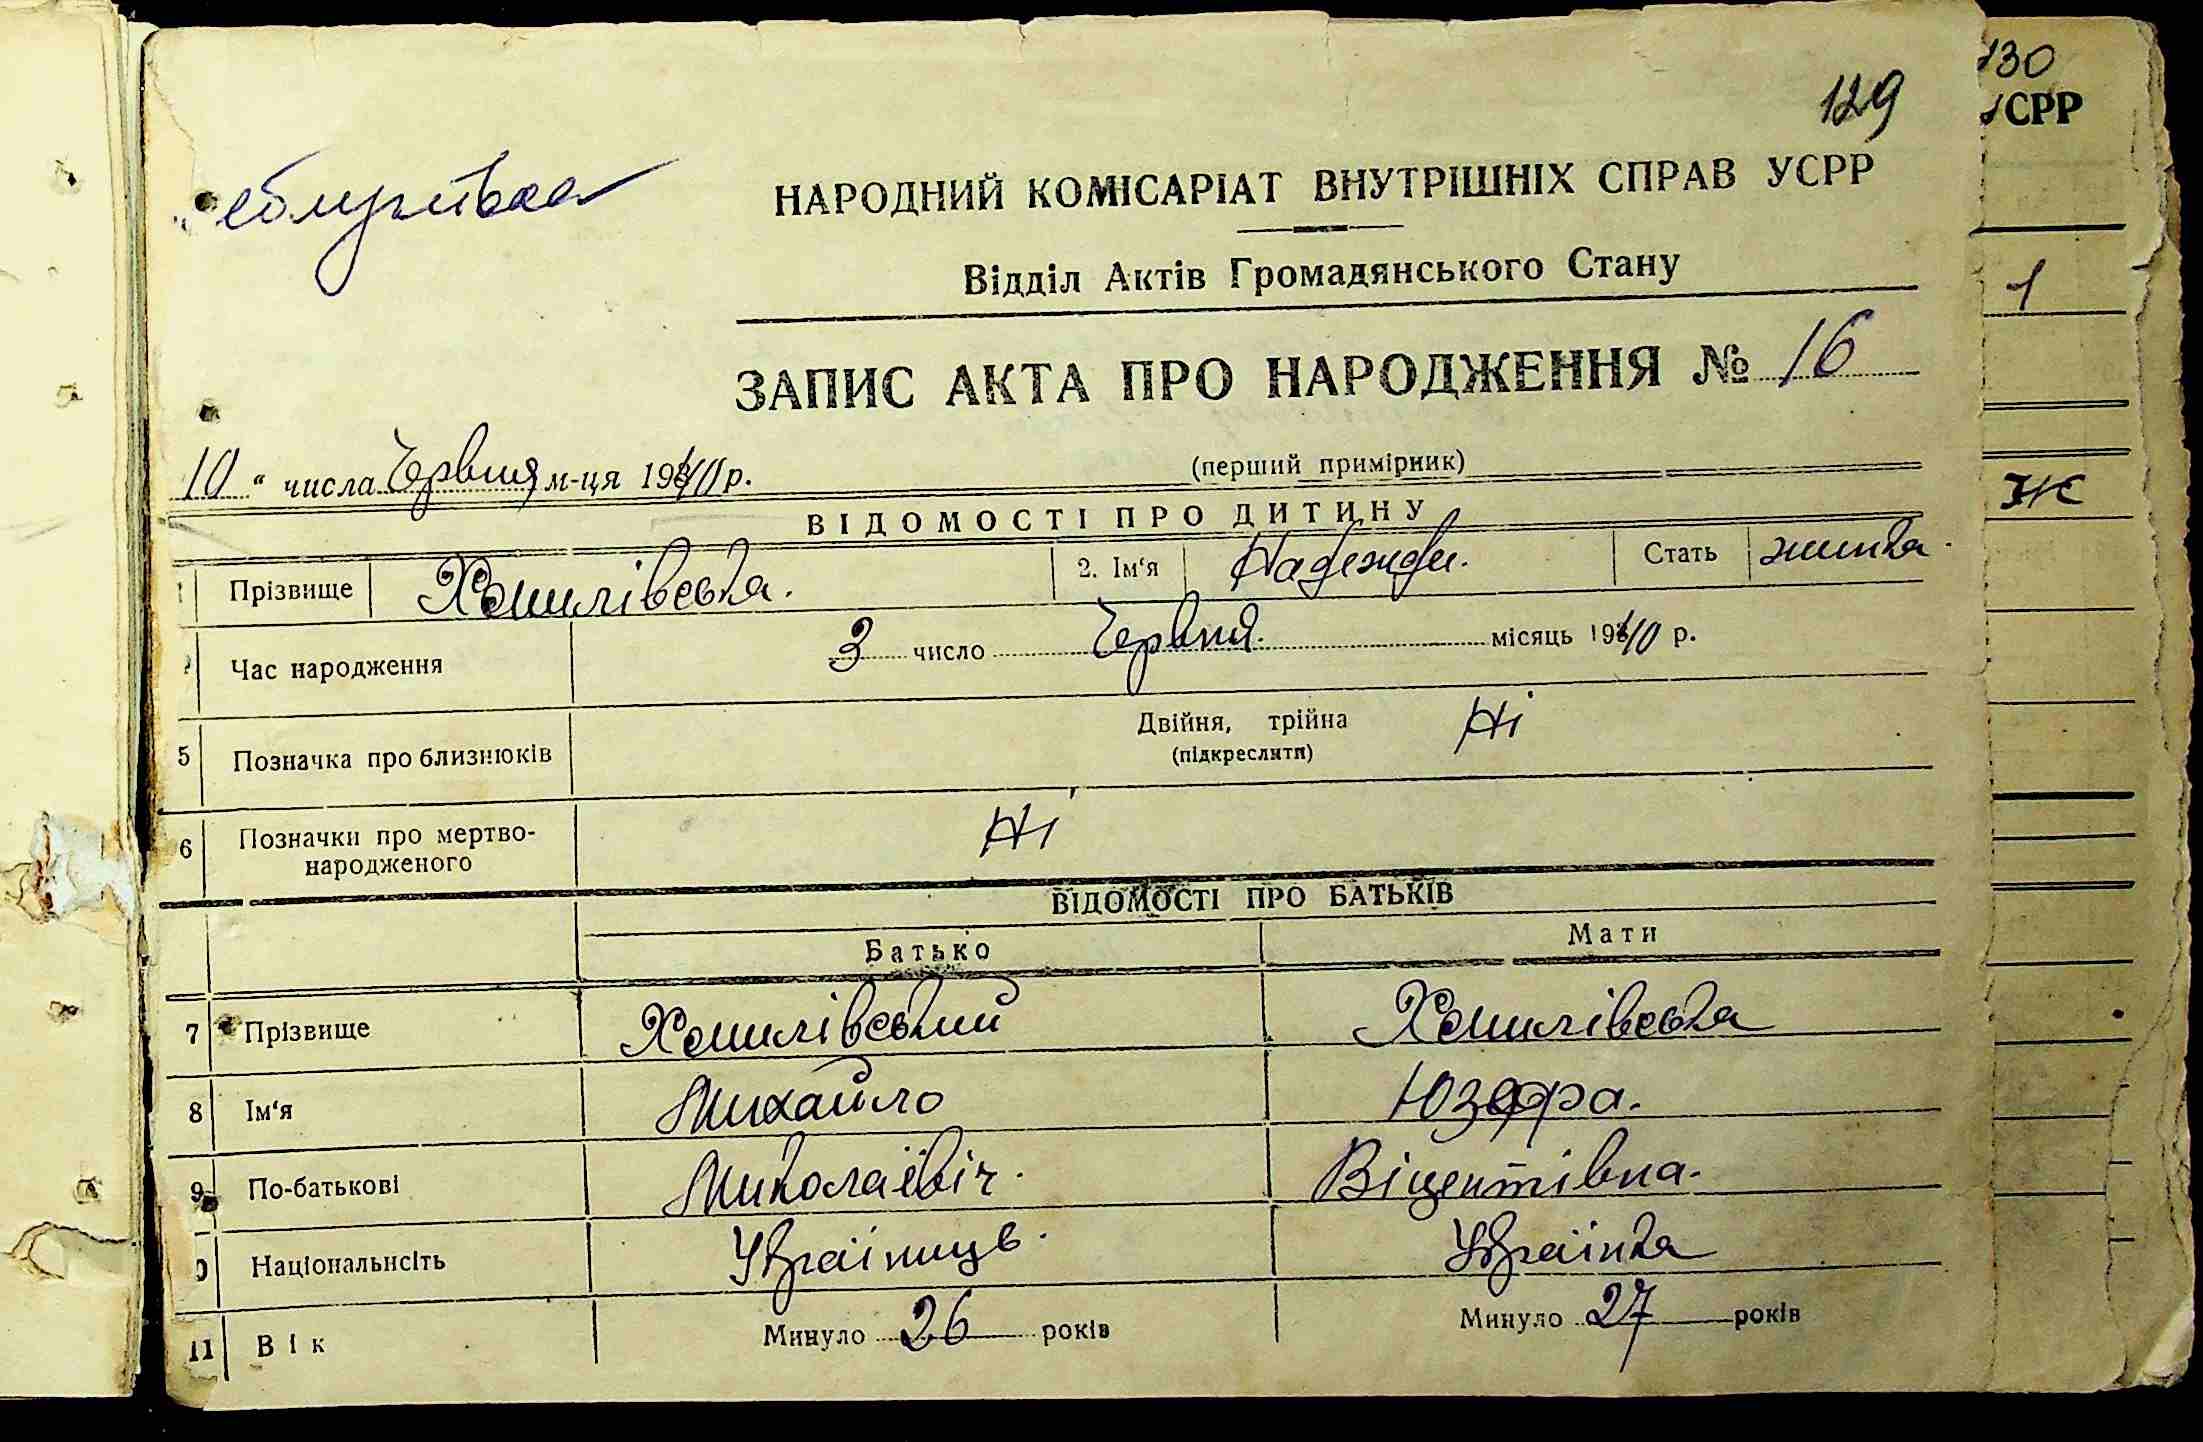 130
УСРР
129
НАРОДНИЙ КОМІСАРІАТ ВНУТРІШНІХ СПРАВ УСРР
Відділ Актів Громадянського Стану
1
ЗАПИС АКТА ПРО НАРОДЖЕННЯ № 16
10 " числа Червня м-ця 1940 р.
(перший примірник)
ж
ВІДОМОСТІ ПРО ДИТИНУ
Прізвище Хомилівська. 2. Ім'я Надежди. Стать жинка.
Час народження 3 число Червня. місяць 1940 р.
5 Позначка про близнюків Двійня, трійна Ні
(підкреслити)
6 Позначки про мертво-
народженого Ні
ВІДОМОСТІ ПРО БАТЬКІВ
Батько Мати
7 Прізвище Хомилівський Хомилівська
8 Ім'я Михайло Юзефа.
9 По-батькові Миколаєвіч. Віцентівна.
Національнсіть Українець. Українка
11 Вік Минуло 26 років Минуло 27 років